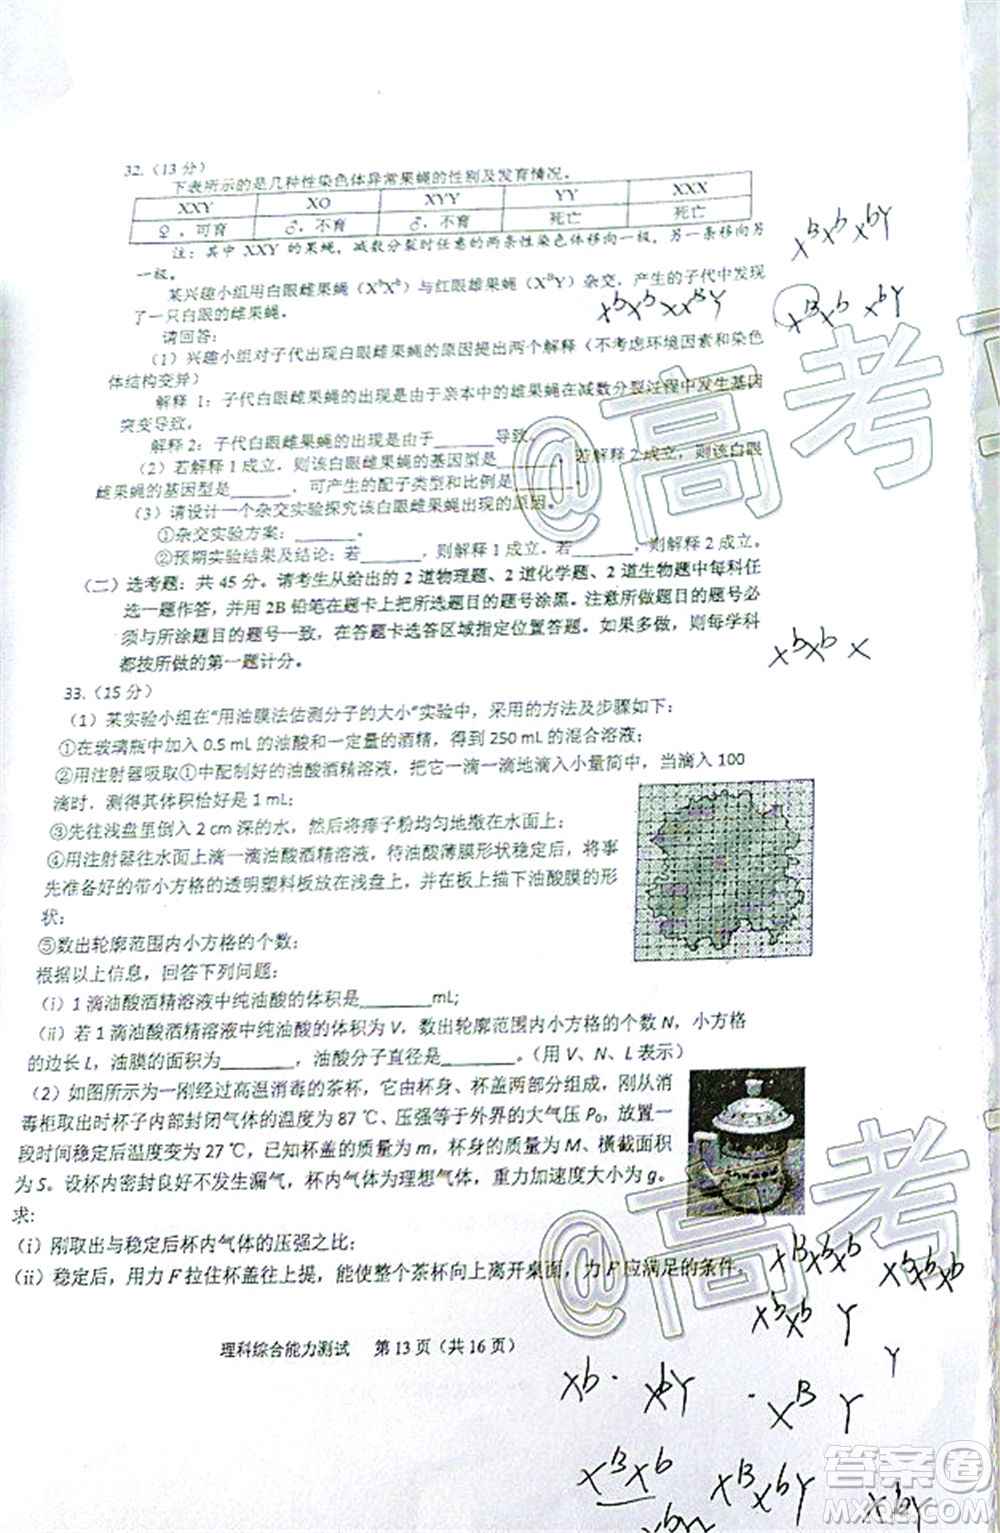 32.（13 分）
下表所示的是几种性染色体异常果蝇的性别及发育情况。
XXY XO XYY YY XXX
♀，可育 ♂，不育 ♂，不育 死亡 死亡
注：其中 XXY 的果蝇，减数分裂时任意的两条性染色体移向一极，另一条移向另
一极。
某兴趣小组用白眼雌果蝇（XᵇXᵇ）与红眼雄果蝇（XᴮY）杂交，产生的子代中发现
了一只白眼的雌果蝇。
请回答：
（1）兴趣小组对子代出现白眼雌果蝇的原因提出两个解释（不考虑环境因素和染色
体结构变异）
解释 1：子代白眼雌果蝇的出现是由于亲本中的雄果蝇在减数分裂过程中发生基因
突变导致。
解释 2：子代白眼雌果蝇的出现是由于______导致。
（2）若解释 1 成立，则该白眼雌果蝇的基因型是______，若解释 2 成立，则该白眼
雌果蝇的基因型是______，可产生的配子类型和比例是______。
（3）请设计一个杂交实验探究该白眼雌果蝇出现的原因。
①杂交实验方案：______。
②预期实验结果及结论：若______，则解释 1 成立；若______，则解释 2 成立。
（二）选考题：共 45 分。请考生从给出的 2 道物理题、2 道化学题、2 道生物题中每科任
选一题作答，并用 2B 铅笔在题卡上把所选题目的题号涂黑。注意所做题目的题号必
须与所涂题目的题号一致，在答题卡选答区域指定位置答题。如果多做，则每学科
都按所做的第一题计分。
33.（15 分）
（1）某实验小组在“用油膜法估测分子的大小”实验中，采用的方法及步骤如下：
①在玻璃瓶中加入 0.5 mL 的油酸和一定量的酒精，得到 250 mL 的混合溶液；
②用注射器吸取①中配制好的油酸酒精溶液，把它一滴一滴地滴入小量筒中，当滴入 100
滴时，测得其体积恰好是 1 mL；
③先往浅盘里倒入 2 cm 深的水，然后将痱子粉均匀地撒在水面上；
④用注射器往水面上滴一滴油酸酒精溶液，待油酸薄膜形状稳定后，将事
先准备好的带小方格的透明塑料板放在浅盘上，并在板上描下油酸膜的形
状；
⑤数出轮廓范围内小方格的个数；
根据以上信息，回答下列问题：
（i）1 滴油酸酒精溶液中纯油酸的体积是________mL;
（ii）若 1 滴油酸酒精溶液中纯油酸的体积为 V，数出轮廓范围内小方格的个数 N，小方格
的边长 L，油膜的面积为________，油酸分子直径是________。（用 V、N、L 表示）
（2）如图所示为一刚经过高温消毒的茶杯，它由杯身、杯盖两部分组成，刚从消
毒柜取出时杯子内部封闭气体的温度为 87 ℃、压强等于外界的大气压 P₀，放置一
段时间稳定后温度变为 27 ℃，已知杯盖的质量为 m，杯身的质量为 M、横截面积
为 S。设杯内密封良好不发生漏气，杯内气体为理想气体，重力加速度大小为 g。
求：
（i）刚取出与稳定后杯内气体的压强之比；
（ii）稳定后，用力 F 拉住杯盖往上提，能使整个茶杯向上离开桌面，力 F 应满足的条件。
理科综合能力测试 第 13 页（共 16 页）
XᴮXᵇ XᵇY
XᵇXᵇ XXᴮY
XᴮXᵇ XᵇY
XᵇXᵇ X
XᴮXᵇ Y
Xᵇ · XᵇY · Xᴮ Y
XᴮXᵇ XᴮXᵇY XᵇY
@高考
@高考
答案圈
MXQE.COM